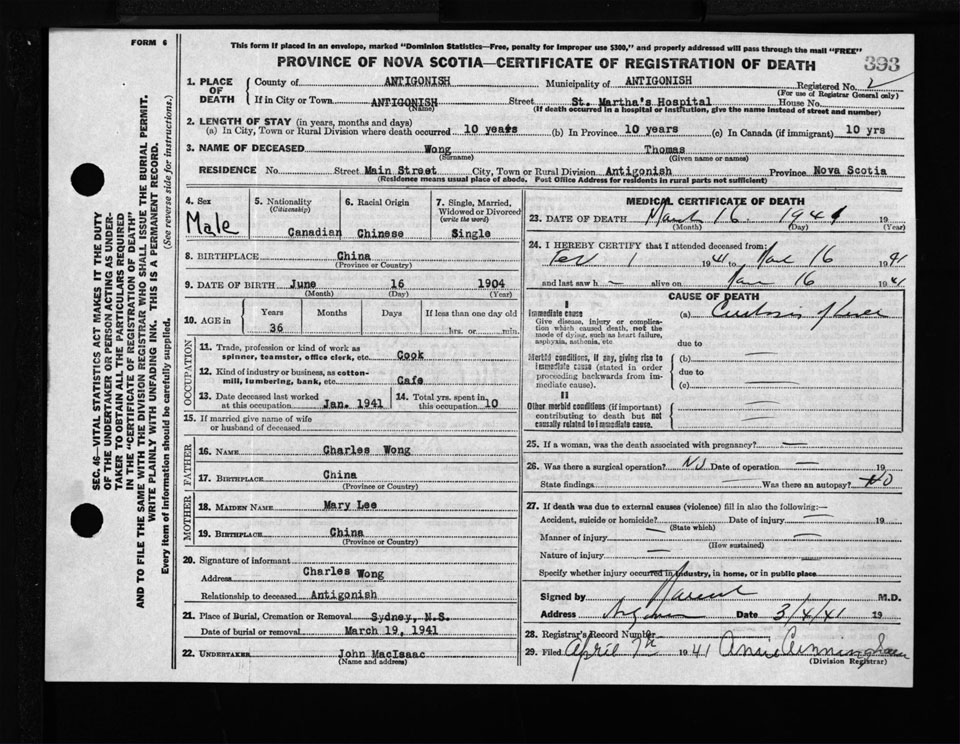 FORM 6
This form if placed in an envelope, marked "Dominion Statistics—Free, penalty for improper use $300," and properly addressed will pass through the mail "FREE"
PROVINCE OF NOVA SCOTIA—CERTIFICATE OF REGISTRATION OF DEATH
393
1. PLACE OF DEATH
County of ANTIGONISH Municipality of ANTIGONISH Registered No.
(For use of Registrar General only)
If in City or Town ANTIGONISH Street St. Martha's Hospital House No.
(Name) (If death occurred in a hospital or institution, give the name instead of street and number)
2. LENGTH OF STAY (in years, months and days)
(a) In City, Town or Rural Division where death occurred 10 years (b) In Province 10 years (c) In Canada (if immigrant) 10 yrs
3. NAME OF DECEASED Wong Thomas
(Surname) (Given name or names)
RESIDENCE No. Street Main Street City, Town or Rural Division Antigonish Province Nova Scotia
(Residence means usual place of abode. Post Office Address for residents in rural parts not sufficient)
4. Sex Male
5. Nationality (Citizenship) Canadian
6. Racial Origin Chinese
7. Single, Married, Widowed or Divorced (write the word) Single
8. BIRTHPLACE China
(Province or Country)
9. DATE OF BIRTH June 16 1904
(Month) (Day) (Year)
10. AGE in Years Months Days If less than one day old
36 hrs. or min.
OCCUPATION
11. Trade, profession or kind of work as spinner, teamster, office clerk, etc. Cook
12. Kind of industry or business, as cotton-mill, lumbering, bank, etc. Cafe
13. Date deceased last worked at this occupation Jan. 1941
14. Total yrs. spent in this occupation 10
15. If married give name of wife or husband of deceased
FATHER
16. NAME Charles Wong
17. BIRTHPLACE China
(Province or Country)
MOTHER
18. MAIDEN NAME Mary Lee
19. BIRTHPLACE China
(Province or Country)
20. Signature of informant
Address Charles Wong
Relationship to deceased Antigonish
21. Place of Burial, Cremation or Removal Sydney, N.S.
Date of burial or removal March 19, 1941
22. UNDERTAKER John MacIsaac
(Name and address)
MEDICAL CERTIFICATE OF DEATH
23. DATE OF DEATH March 16 1941 19
(Month) (Day) (Year)
24. I HEREBY CERTIFY that I attended deceased from:
Feb 1 1941 to Mar 16 1941
and last saw h alive on Mar 16 1941
CAUSE OF DEATH
I
Immediate cause
Give disease, injury or complication which caused death, not the mode of dying, such as heart failure, asphyxia, asthenia, etc
(a) Cirrhosis of Liver
due to
Morbid conditions, if any, giving rise to immediate cause (stated in order proceeding backwards from immediate cause).
(b) —
due to
(c) —
II
Other morbid conditions (if important) contributing to death but not causally related to immediate cause.
25. If a woman, was the death associated with pregnancy? —
26. Was there a surgical operation? No Date of operation — 19
State findings — Was there an autopsy? No
27. If death was due to external causes (violence) fill in also the following:—
Accident, suicide or homicide? — Date of injury — 19
(State which)
Manner of injury —
(How sustained)
Nature of injury —
Specify whether injury occurred in industry, in home, or in public place
Signed by M.D.
Address Date 3/4/41 19
28. Registrar's Record Number
29. Filed April 7th 1941 Annie Cunningham
(Division Registrar)
SEC. 46—VITAL STATISTICS ACT MAKES IT THE DUTY
OF THE UNDERTAKER OR PERSON ACTING AS UNDER-
TAKER TO OBTAIN ALL THE PARTICULARS REQUIRED
IN THE "CERTIFICATE OF REGISTRATION OF DEATH"
AND TO FILE THE SAME WITH THE DIVISION REGISTRAR WHO SHALL ISSUE THE BURIAL PERMIT.
WRITE PLAINLY WITH UNFADING INK. THIS IS A PERMANENT RECORD.
Every item of information should be carefully supplied. (See reverse side for instructions.)